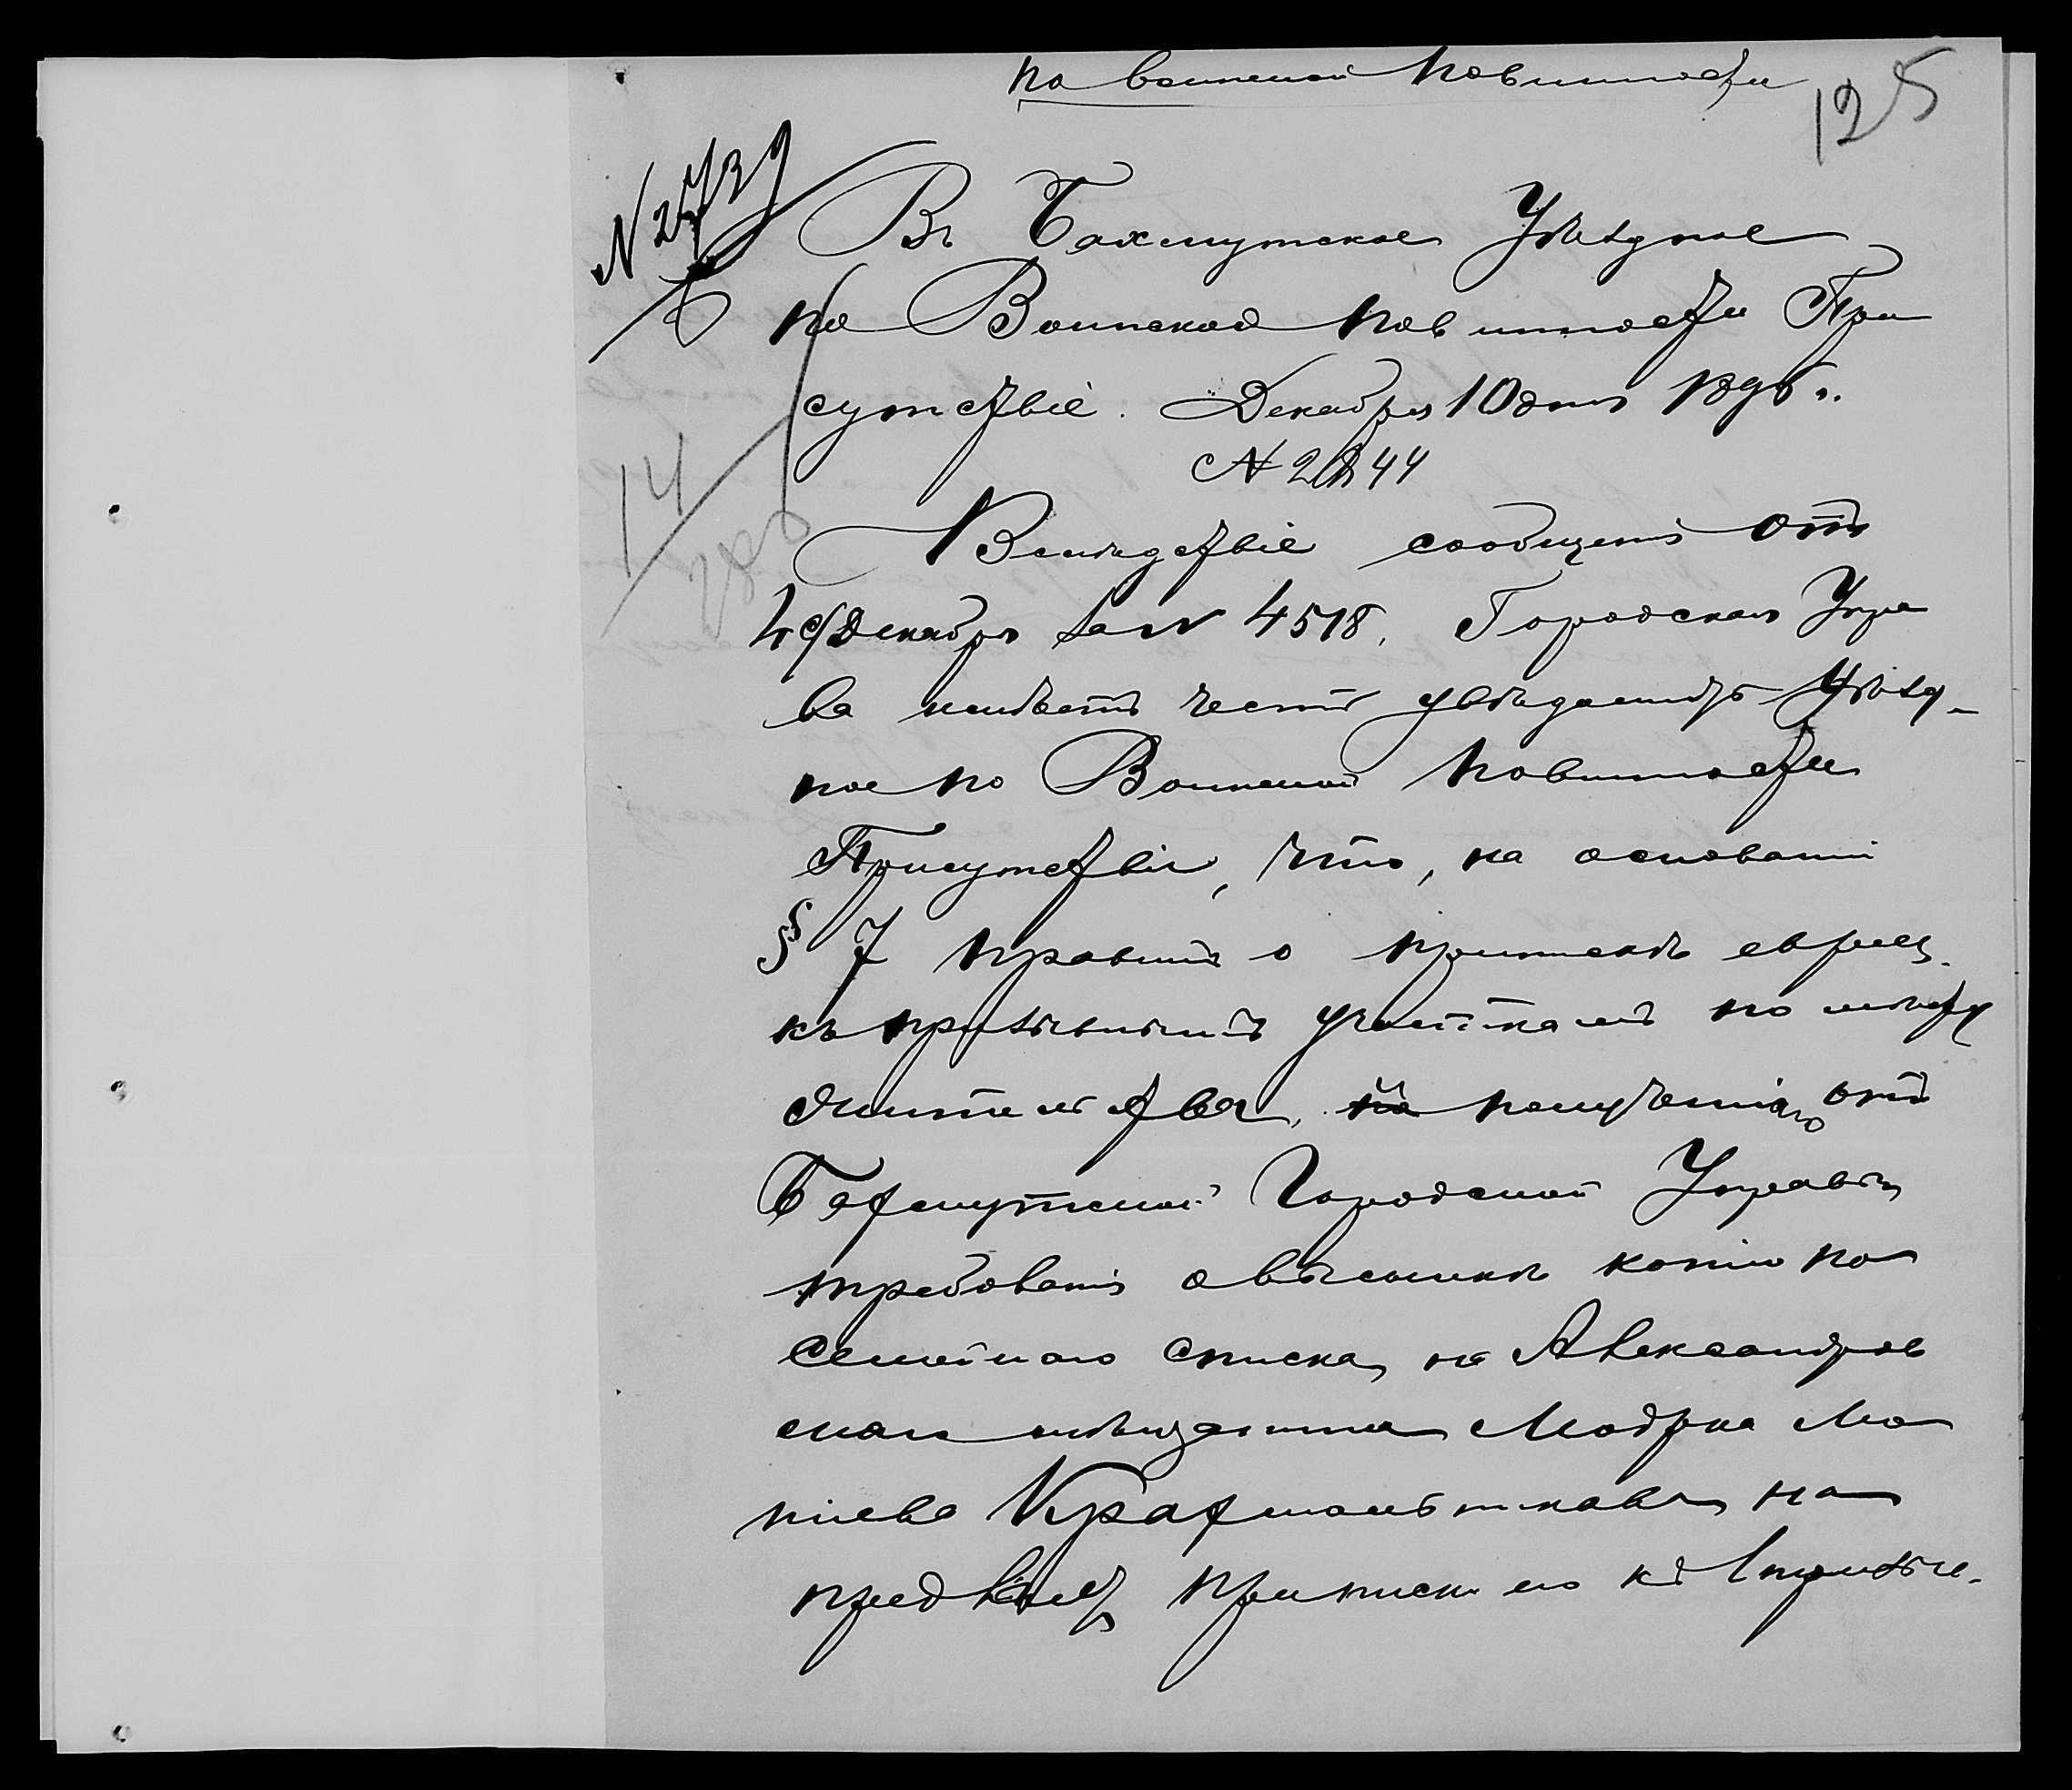 по воинской повинности
125
N 2739
Въ Бахмутское Уѣздное
по Воинской повинности При
сутствіе. Декабря 10 дня 1896 г.
N 2844
14
Вслѣдствіе сообщенія отъ
4 Декабря за N 4518, Городская Упра
ва имѣетъ честь увѣдомить Уѣзд-
ное по Воинской повинности
Присутствіе, что, на основаніи
§ 7 правилъ о припискѣ евреевъ
къ призывнымъ участкамъ по мѣсту
жительства, по полученіи отъ
Бахмутской Городской Управы
требованія о высылкѣ копіи по
семейнаго списка на Александров
скаго мѣщанина Мордка Мо
Крахмальникова, на
предметъ приписки его къ 1 призыв.